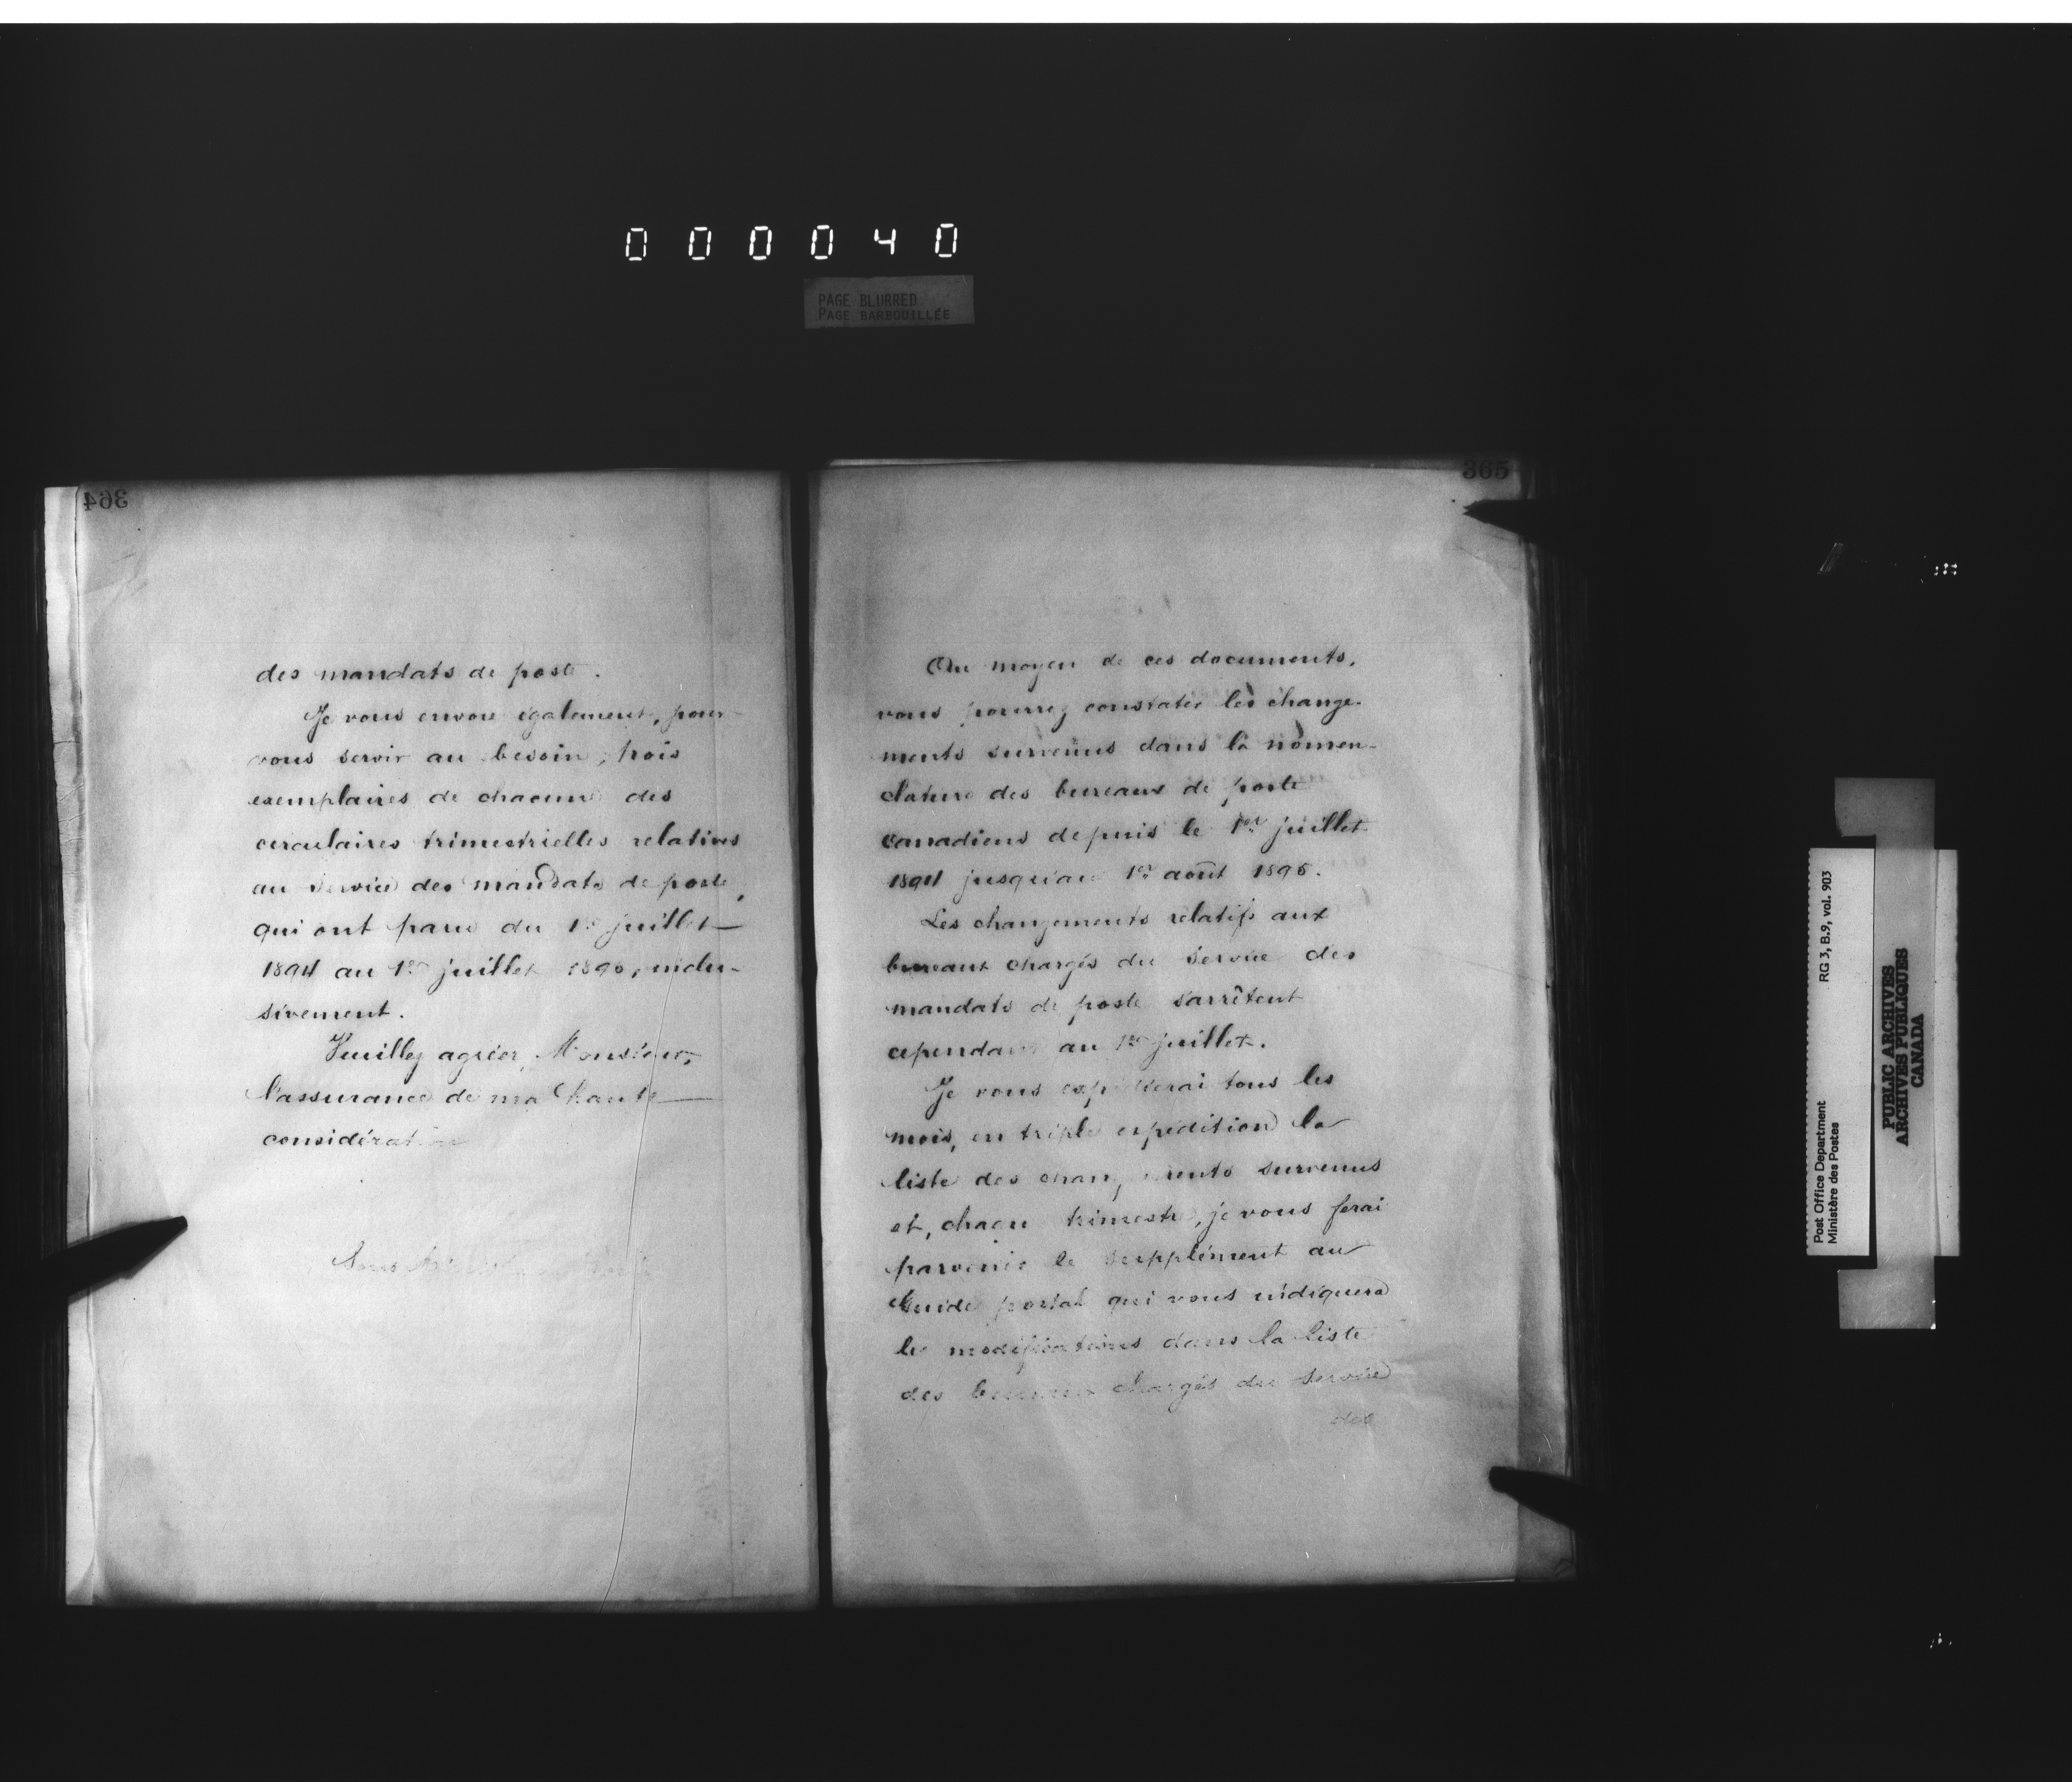 000040
PAGE BLURRED
PAGE BARBOUILLÉE
364
des mandats de poste.
Je vous envoie également, pour
vous servir au besoin, trois
exemplaires de chacune des
circulaires trimestrielles relatives
au service des mandats de poste,
qui ont paru du 1er juillet
1894 au 1er juillet 1895, inclu-
sivement.
Veuillez agréer, Monsieur,
l'assurance de ma haute
considération
365
Au moyen de ces documents,
vous pourrez constater les change-
ments survenus dans la nomen-
clature des bureaux de poste
canadiens depuis le 1er juillet
1894 jusqu'au 1er août 1895.
Les changements relatifs aux
bureaux chargés du service des
mandats de poste s'arrêtent
cependant au 1er juillet.
Je vous expédierai tous les
mois, en triple expédition la
liste des changements survenus
et, chaque trimestre, je vous ferai
parvenir le supplément au
Guide postal qui vous indiquera
les modifications dans la liste
des bureaux chargés du service
des
Post Office Department
Ministère des Postes
RG 3, B.9, vol. 903
PUBLIC ARCHIVES
ARCHIVES PUBLIQUES
CANADA